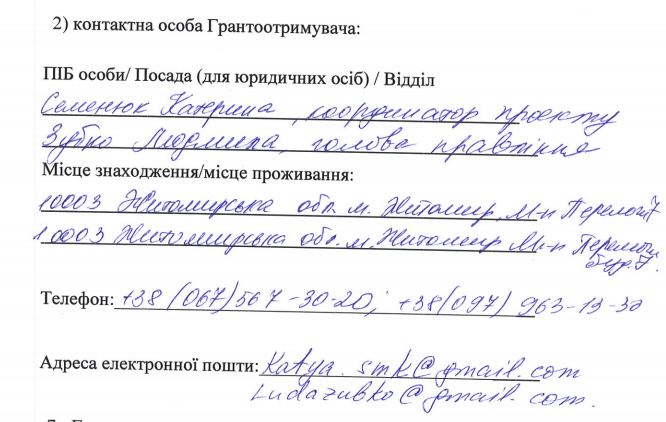 2) контактна особа Грантоотримувача:
ПІБ особи/ Посада (для юридичних осіб) / Відділ
Семенюк Катерина, координатор проекту
Зубко Людмила, голова правління
Місце знаходження/місце проживання:
10003 Житомирська обл. м. Житомир, М-н Перемоги 7
10003 Житомирська обл. м. Житомир М-н Перемоги
буд. 7.
Телефон: +38 (067) 567-30-20; +38 (097) 963-13-30
Адреса електронної пошти: Katya.smk@gmail.com
Ludazubko@gmail.com.